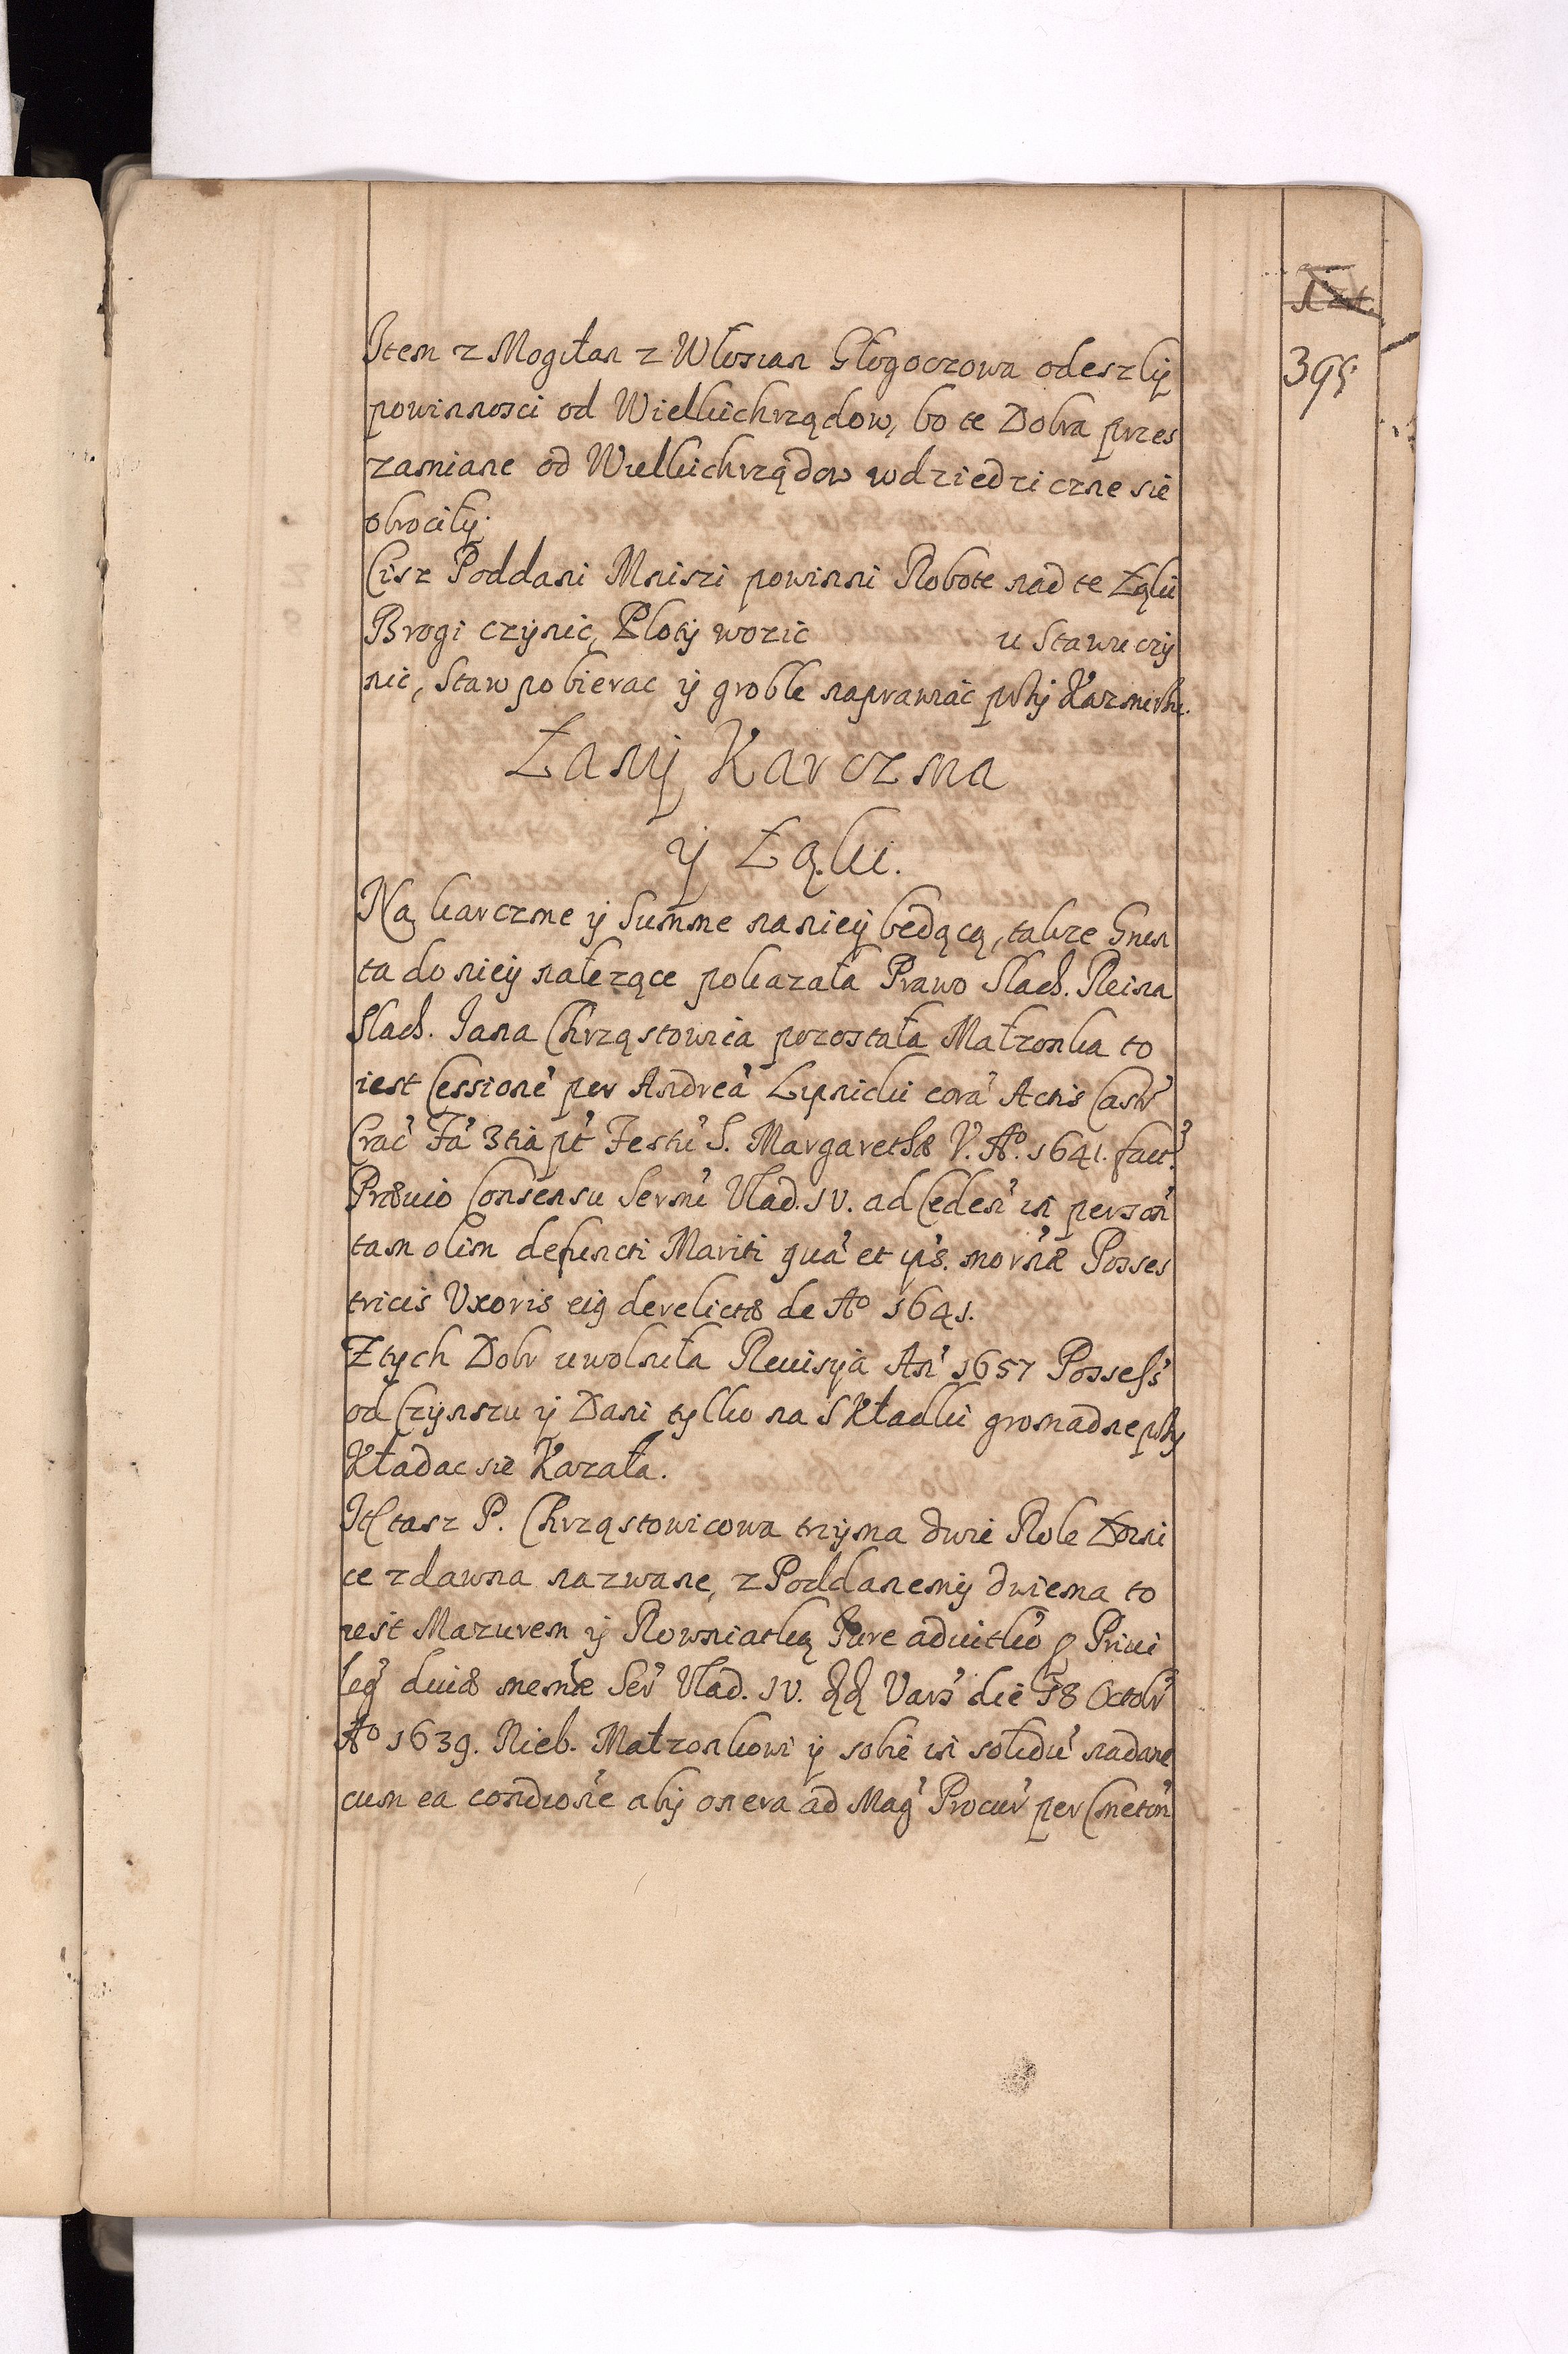 395.
Item z Mogilan z Włosian Głogoczowa odeszlÿ
powinnosci od Wielkichrządow, bo te Dobra przes
zamiane od Wielkichrządow wdziedziczne sie
obrociłÿ.
Cisz Poddani Mniszi powinni Robote nad te Łąki
Brogi czÿnic, Płotÿ wozic u Stawu czÿ
nic, Staw pobierac ÿ groble naprawiac prÿ
Łanÿ Karczma
ÿ Łąki.
Na karczme ÿ Summe na nieÿ bedącą, takze Grun
ta do nieÿ nalezące pokazała Prawo Slach. Reina
Slach. Jana Chrząstowica pozostała Małzonka to
iest Cessione per Andrea Lipnicki cora Actis Castr
Crac Fa 3tia pt Festu S. Margarethæ V. Aº. 1641. fact.
Præuio Consensu Sermi Vlad. IV. ad Ceden in person
tam olim defuncti Mariti qua et ips. mornæ Posses
tricis Vxoris eiq derelictæ de Aº 1641.
Z tych Dobr uwolniła Reuisÿa An 1657 Possess
od Czÿnszu ÿ Dani tylko na Składki gromadne prÿ
Kładac sie Kazała.
It tasz P. Chrząstowicowa trzÿma dwie Role
ce zdawna nazwane, z Poddanemÿ dwiema to
iest Mazurem ÿ Rowniatką Jure aduitło p Priui
leg diuæ memæ Ser Vlad. IV. Vars die 18 Octobr
Aº 1639. Nieb. Małzonkowi ÿ sobie in solidu nadane
cum ea condicone abÿ onera ad Mag Procur per Cmeton